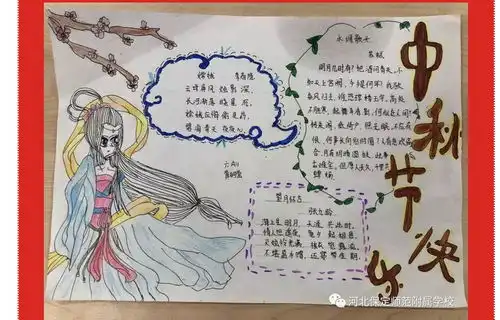 嫦娥 李商隐
云母屏风烛影深，
长河渐落晓星沉。
嫦娥应悔偷灵药，
碧海青天夜夜心。
水调歌头
苏轼
明月几时有？把酒问青天，不
知天上宫阙，今夕是何年？我欲
乘风归去，惟恐琼楼玉宇，高处
不胜寒，起舞弄清影，何似在人间？
转朱阁，低绮户，照无眠，不应有
恨，何事长向别时圆？人有悲欢离
合，月有阴晴圆缺，此事
古难全，但愿人长久，千里共
婵娟。
望月怀古
张九龄
海上生明月，天涯共此时。
情人怨遥夜，竟夕起相思。
灭烛怜光满，披衣觉露滋。
不堪盈手赠，还寝梦佳期。
中秋节快乐
河北保定师范附属学校